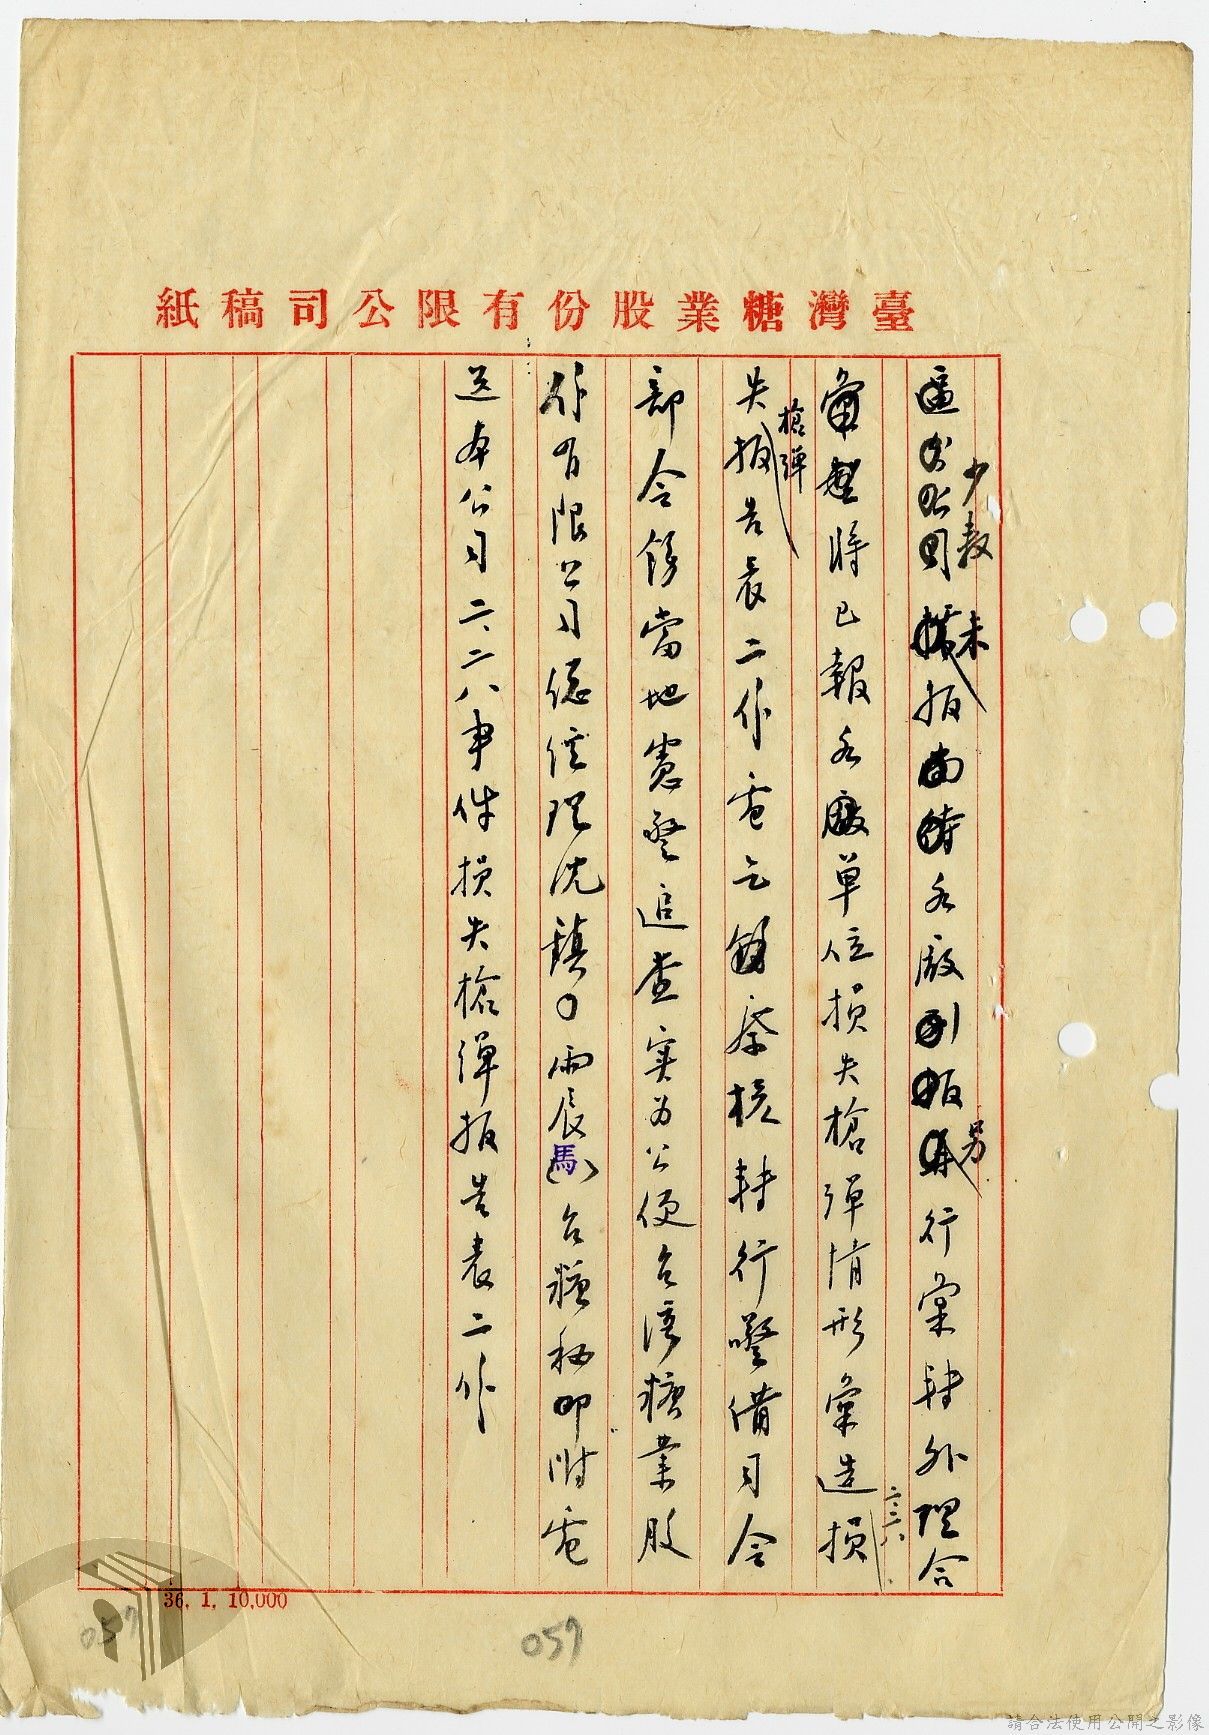 臺灣糖業股份有限公司稿紙
少數 未 另
報各廠行彙轉外理合
將已報各廠單位損失槍彈情形彙造損
二二八
槍彈
失報告表二份電乞察核轉行警備司令
部令飭當地憲警追查實為公便台灣糖業股
份有限公司總經理沈鎮〇雨辰(馬)台糖秘叩附電
送本公司二、二八事件損失槍彈報告表二份
36. 1. 10,000
057
057
請合法使用公開之影像